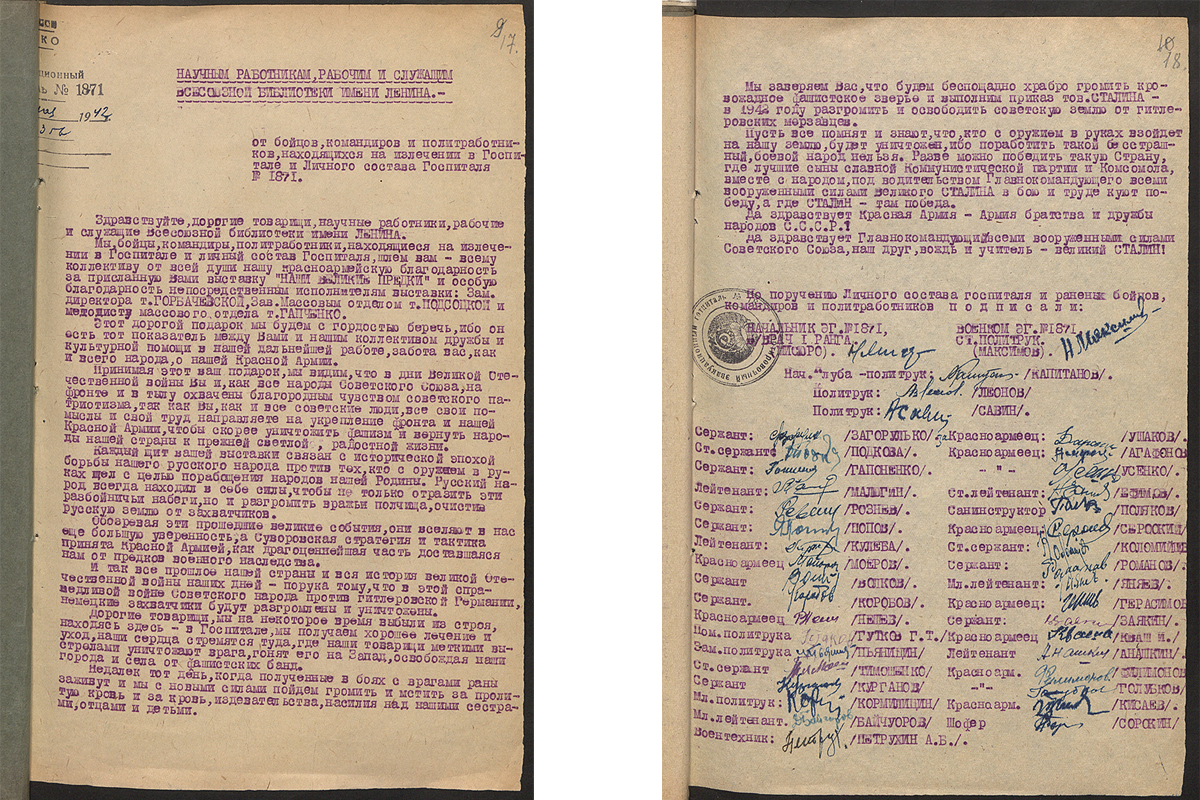 9
17.
КО
ционный
№ 1871
1942
НАУЧНЫМ РАБОТНИКАМ,РАБОЧИМ И СЛУЖАЩИМ
ВСЕСОЮЗНОЙ БИБЛИОТЕКИ ИМЕНИ ЛЕНИНА.-
от бойцов,командиров и политработни-
ков,находящихся на излечении в Госпи-
тале и Личного состава Госпиталя
№ 1871.
Здравствуйте,дорогие товарищи,научные работники,рабочие
и служащие Всесоюзной библиотеки имени ЛЕНИНА.
Мы,бойцы,командиры,политработники,находящиеся на излече-
нии в Госпитале и личный состав Госпиталя,шлем вам - всему
коллективу от всей души нашу красноармейскую благодарность
за присланную Вами выставку "НАШИ ВЕЛИКИЕ ПРЕДКИ" и особую
благодарность непосредственным исполнителям выставки: Зам.
директора т.ГОРБАЧЕВСКОЙ,Зав.Массовым отделом т.ПОДСОЦКОМ и
методисту массового отдела т.ГАПЧЕНКО.
Этот дорогой подарок мы будем с гордостью беречь,ибо он
есть тот показатель между Вами и нашим коллективом дружбы и
культурной помощи в нашей дальнейшей работе,забота вас,как
и всего народа,о нашей Красной Армии.
Принимая этот ваш подарок,мы видим,что в дни Великой Оте-
чественной войны Вы и,как все народы Советского Союза,на
фронте и в тылу охвачены благородным чувством советского па-
триотизма,так как Вы,как и все советские люди,все свои по-
мыслы и свой труд направляете на укрепление фронта и нашей
Красной Армии,чтобы скорее уничтожить фашизм и вернуть наро-
ды нашей страны к прежней светлой , радостной жизни.
Каждый щит вашей выставки связан с исторической эпохой
борьбы нашего русского народа против тех,кто с оружием в ру-
ках шел с целью порабощения народов нашей Родины. Русский на-
род всегда находил в себе силы,чтобы не только отразить эти
разбойничьи набеги,но и разгромить вражьи полчища,очистив
русскую землю от захватчиков.
Обозревая эти прошедшие великие события,они вселяют в нас
еще большую уверенность,а Суворовская стратегия и тактика
принята Красной Армией,как драгоценнейшая часть доставшаяся
нам от предков военного наследства.
И так все прошлое нашей страны и вся история великой Оте-
чественной войны наших дней - порука тому,что в этой спра-
ведливой войне Советского народа против гитлеровской Германии,
немецкие захватчики будут разгромлены и уничтожены.
Дорогие товарищи,мы на некоторое время выбыли из строя,
находясь здесь - в Госпитале,мы получаем хорошее лечение и
уход,наши сердца стремятся туда,где наши товарищи меткими вы-
стрелами уничтожают врага,гонят его на Запад,освобождая наши
города и села от фашистских банд.
Недалек тот день,когда полученные в боях с врагами раны
заживут и мы с новыми силами пойдем громить и мстить за проли-
тую кровь и за кровь,издевательства,насилия над нашими сестра-
ми,отцами и детьми.
10
18.
Мы заверяем Вас,что будем беспощадно храбро громить кро-
вожадное фашистское зверье и выполним приказ тов.СТАЛИНА -
в 1942 году разгромить и освободить советскую землю от гитле-
ровских мерзавцев.
Пусть все помнят и знают,что,кто с оружием в руках взойдет
на нашу землю,будет уничтожен,ибо поработить такой бесстраш-
ный,боевой народ нельзя. Разве можно победить такую Страну,
где лучшие сыны славной Коммунистической партии и Комсомола,
вместе с народом,под водительством Главнокомандующего всеми
вооруженными силами Великого СТАЛИНА в бою и труде куют по-
беду,а где СТАЛИН - там победа.
Да здравствует Красная Армия - Армия братства и дружбы
народов С.С.С.Р.!
Да здравствует Главнокомандующий всеми вооруженными силами
Советского Союза,наш друг,вождь и учитель - великий СТАЛИН!
По поручению Личного состава госпиталя и раненых бойцов,
командиров и политработников п о д п и с а л и:
НАЧАЛЬНИК ЭГ.№1871, ВОЕНКОМ ЭГ.№1871
В/ВРАЧ I РАНГА СТ.ПОЛИТРУК.
(МАКСИМОВ). Н.Максимов
Нач.клуба -политрук: /КАПИТАНОВ/.
Политрук: /ЛЕОНОВ/
Политрук: /САВИН/.
Сержант: /ЗАГОРУЛЬКО/ Красноармеец: /УШАКОВ/.
Ст.сержант: /ПОДКОВА/. Красноармеец: /АГАФОНОВ
Сержант: /ГАПОНЕНКО/. -"- /УСЕНКО/.
Лейтенант: /МАЛЮГИН/. Ст.лейтенант: /ЕФИМОВ/.
Сержант: /РОЗНЕВ/. Санинструктор /ПОЛЯКОВ/
Сержант: /ПОПОВ/. Красноармеец: /СЫРОСКИН/
Лейтенант: /КУЛЕВА/. Ст.сержант: /КОЛОМИЙЦЕ
Красноармеец /МОЕРОВ/. Сержант: /РОМАНОВ/.
Сержант /ВОЛКОВ/. Мл.лейтенант: /ЯНЯЕВ/.
Сержант. /КОРОБОВ/. Красноармеец: /ГЕРАСИМОВ
Красноармеец /ПЕЛЕВ/. Сержант: /ЗАЯКИН/.
Пом.политрука /ГУТКОВ Г.Т./ Красноармеец /КВАШ И./
Зам.политрука /ПЬЯНИНИН/ Лейтенант /АНАШКИН/.
Ст.сержант /ТИМОШЕНКО/ Красноарм. /ФИЛИМОНОВ
Сержант /КУРГАНОВ/ -"- /ГОЛУБКОВ/
Мл.политрук: /КОРМИЛИЦИН/ Красноарм. /КИСАЕВ/.
Мл.лейтенант. /БАЙЧУОРОВ/ Шофер /СОРОКИН/
Воентехник: /ПЕТРУХИН А.Б./.